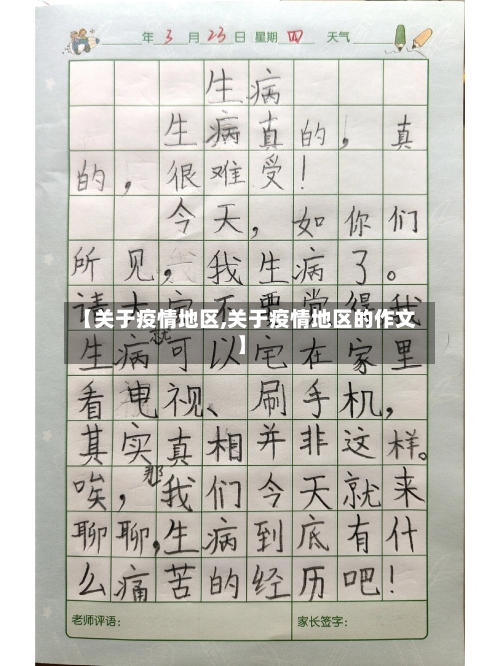 年 3 月 23 日 星期 四 天气
生病
生病真的，真
的，很难受！
今天，如你们
所见，我生病了。
请大家不要觉得我
【关于疫情地区,关于疫情地区的作文
】
生病就可以宅在家里
看电视、刷手机，
其实真相并非这样。
唉，那我们今天就来
聊聊，生病到底有什
么痛苦的经历吧！
老师评语： 家长签字：